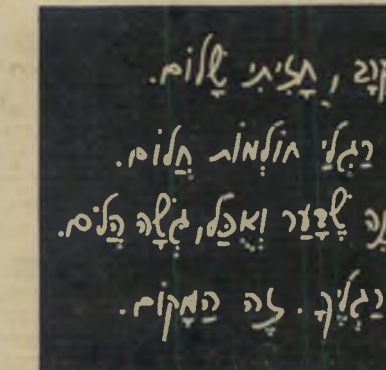 , חָזִיתִי שָׁלוֹם.
רַגְלַי חוֹלְמוֹת חֲלוֹם.
שֶׁבָּעַר וְאֻכַּל, גְּשָׁה הֲלוֹם.
רַגְלֶיךָ. זֶה הַמָּקוֹם.